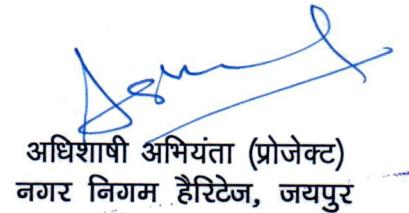 अधिशाषी अभियंता (प्रोजेक्ट)
नगर निगम हैरिटेज, जयपुर